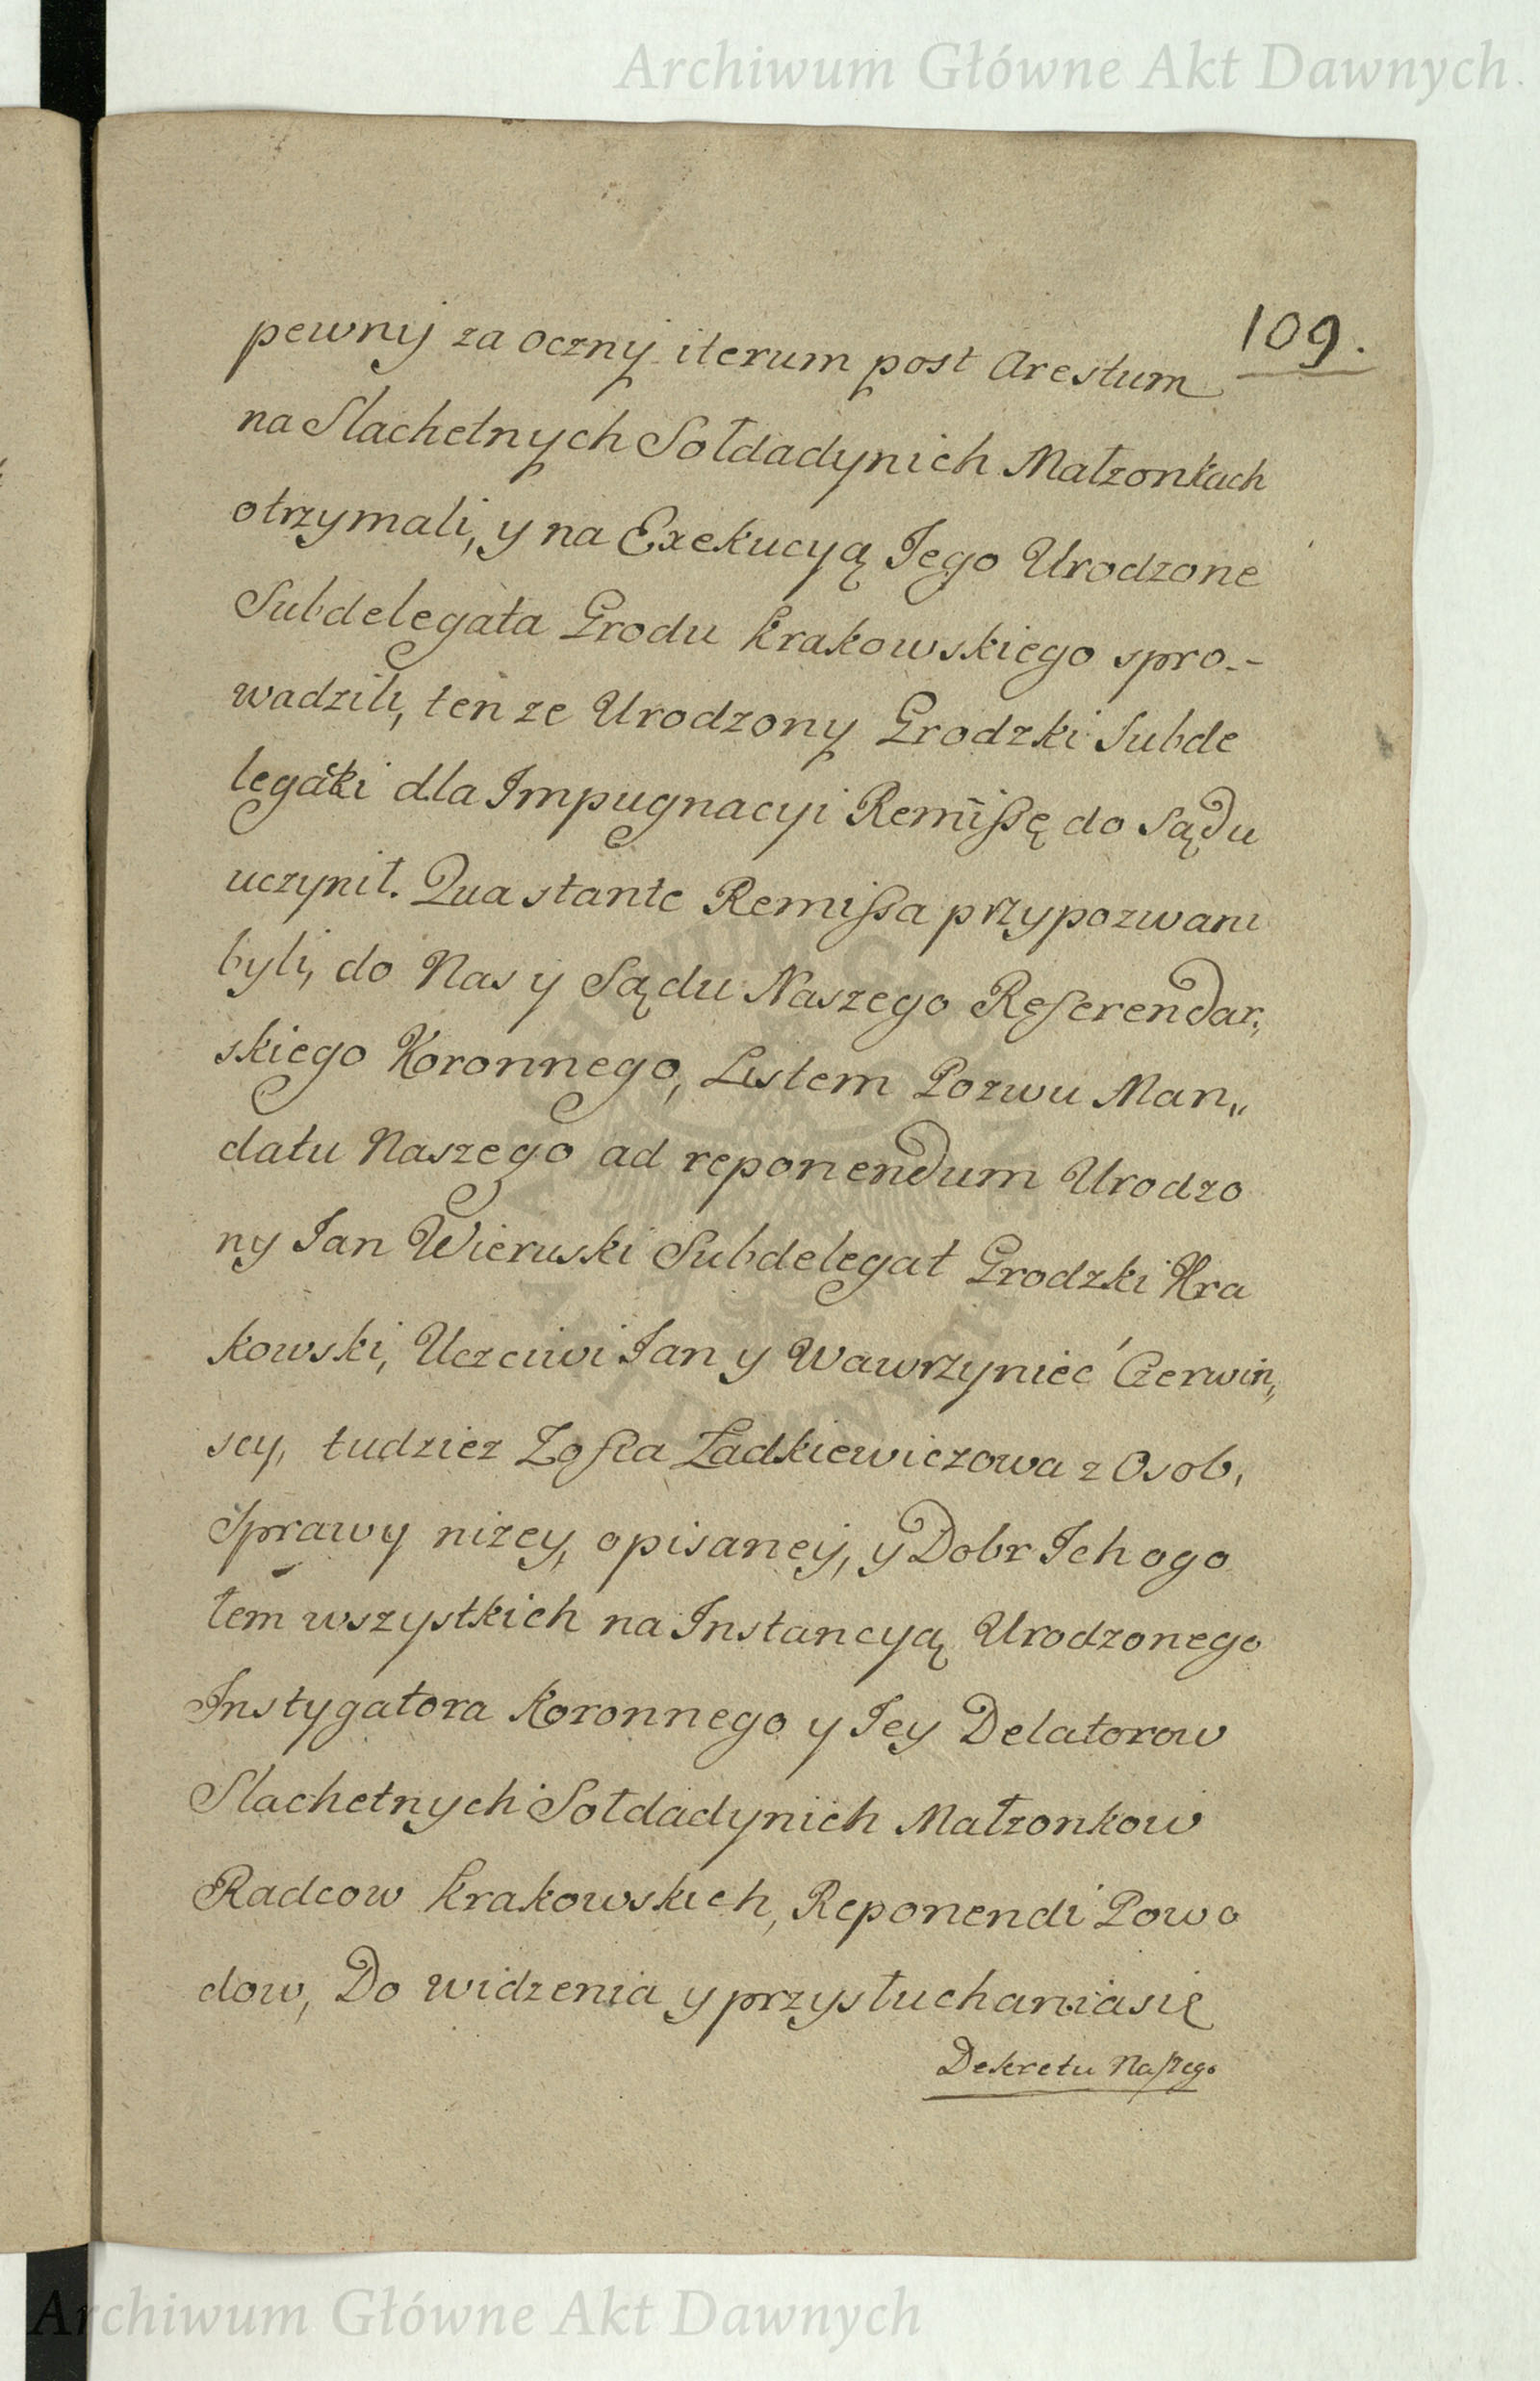 Archiwum Główne Akt Dawnych
109.
pewny za oczny iterum post Arestum
na Slachetnych Sołdadynich Małzonkach
otrzymali, y na Exekucyą Jego Urodzone
Subdelegata Grodu Krakowskiego spro-
wadzili, ten ze Urodzony Grodzki Subde
legatki dla Impugnacyi Remissę do Sądu
uczynił. Qua stante Remissa przypozwani
byli, do Nas y Sądu Naszego Referendar„
skiego Koronnego, Listem Pozwu Man„
datu Naszego ad reponendum Urodzo
ny Jan Wieruski Subdelegat Grodzki Kra
kowski, Uczciwi Jan y Wawrzyniec Czerwin„
scy, tudziez Zofia Ladkiewiczowa z Osob,
Sprawy nizey, opisaney, y Dobr Ich ogo
łem wszystkich na Instancyą Urodzonego
Instygatora Koronnego y Jey Delatorow
Slachetnych Sołdadynich Małzonkow
Radcow Krakowskich, Reponendi Powo
dow, Do widzenia y przysłuchania się
Dekretu Naszego
Archiwum Główne Akt Dawnych